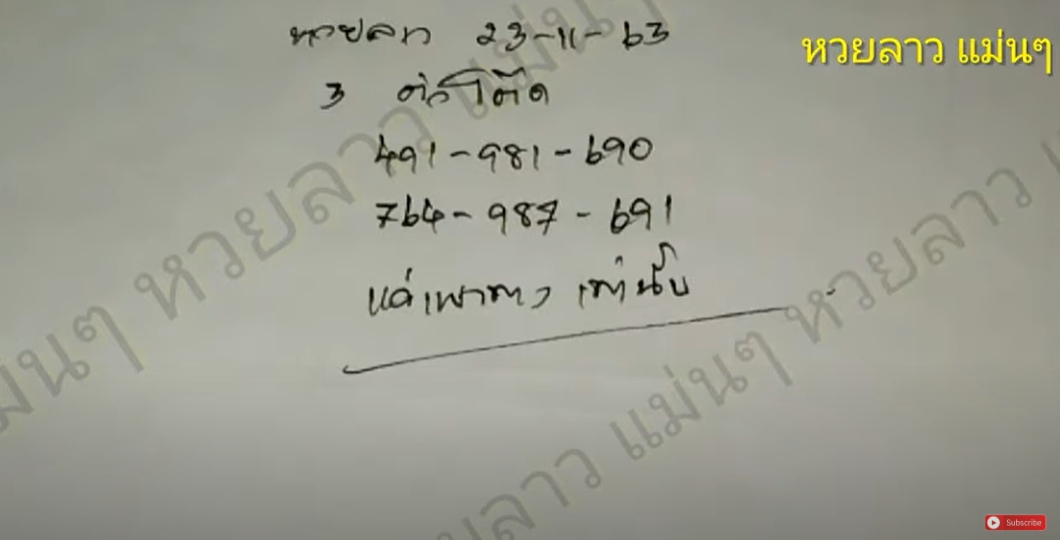 หวยลาว 23-11-63
หวยลาว แม่นๆ
3 ตัวโต๊ด
491-981-690
764-987-691
เท่านั้น
หวยลาว แม่นๆ
แม่นๆ หวยลาว
หวยลาว แม่นๆ หวยลาว
Subscribe